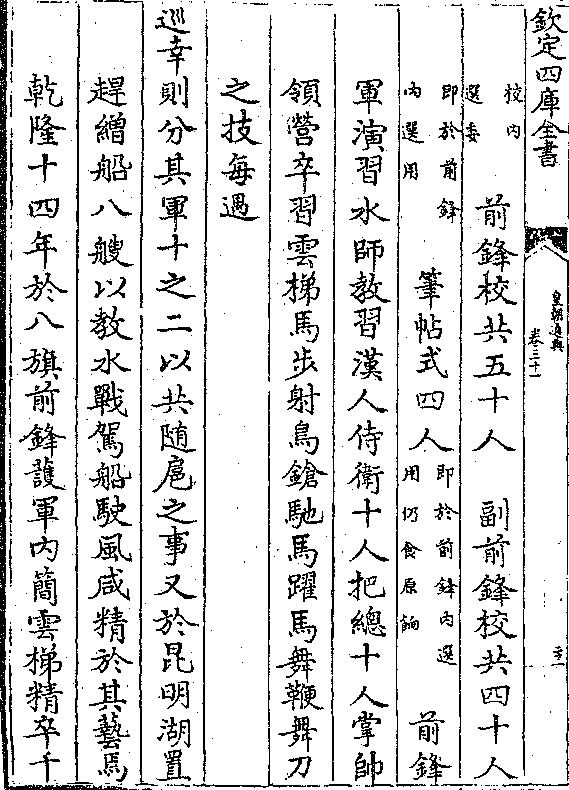 欽定四庫全書
皇朝通典
卷三十一
校內
選委
前鋒校共五十人
副前鋒校共四十人
即於前鋒
內選用
筆帖式四人
即於前鋒內選
用仍食原餉
前鋒
軍演習水師教習漢人侍衛十人把總十人掌帥
領營卒習雲梯馬步射鳥鎗馳馬躍馬舞鞭舞刀
之技每遇
巡幸則分其軍十之二以共隨扈之事又於昆明湖置
趕繒船八艘以教水戰駕船駛風咸精於其藝焉
乾隆十四年於八旗前鋒護軍內簡雲梯精卒千